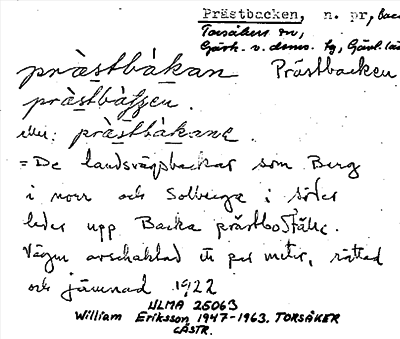 Prästbacken, n. pr, bac
Torsåkers sn,
Gästr. v. doms. tg, Gävl. lä
pràstbàkan Prästbacken
pràstbàʃʃen.
eller: pràstbàkane.
= De landsvägsbackar som Berg
i norr och Solberga i söder
leder upp Backa prästboställe.
Vägen avschaktad ett par meter, rättad
och jämnad 1922
ULMA 25063
William Eriksson 1947-1963. TORSÅKER
GÄSTR.